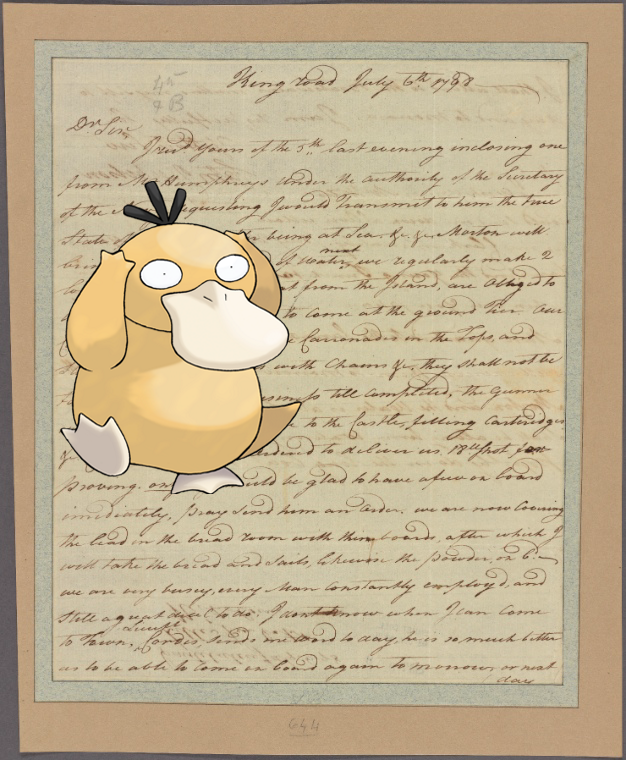 45
& B
King road July 6th 1798
Dr Sir
I recd yours of the 5th last evening inclosing one
from Mr Humphreys under the authority of the Secretary
of the requesting I would Transmit to him the true
State of being at Sea. &c. &c. Morton will
next
of Water, we regularly make 2
from the Island, are obliged to
to come at the ground tier. Our
Carronades in the Tops, and
with Chains &c. they shall not be
till completed, the Gunner
to the Castle, filling Cartridges
ordered to deliver us 18lb shot, for
proving. would be glad to have a few on board
imediately, pray send him an order. we are now Covering
the lead in the bread room with thin boards, after which I
will take the bread and Sails, likewise the powder, on board
we are very busey, every Man Constantly employd, and
Still a great deal to do. I dont know when I can Come
to Town, Condes send me word to day he is so much better
as to be able to come on board again to morrow or next
day
644